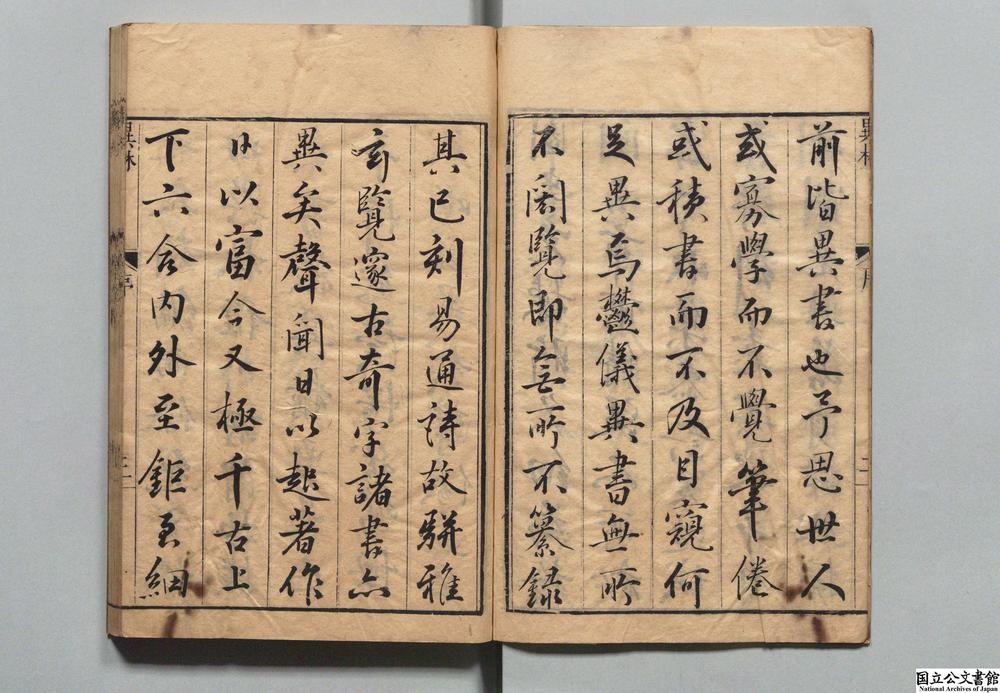 前皆異書也予思世人
或寡學而不覺筆倦
或積書而不及目窺何
足異焉鬱儀異書無所
不閱覽即無所不纂錄
異林
序
二
其已刻易通詩故駢雅
玄覽邃古奇字諸書亦
異矣聲聞日以起著作
日以富今又極千古上
下六合內外至鉅至細
異林
序
國立公文書館
National Archives of Japan